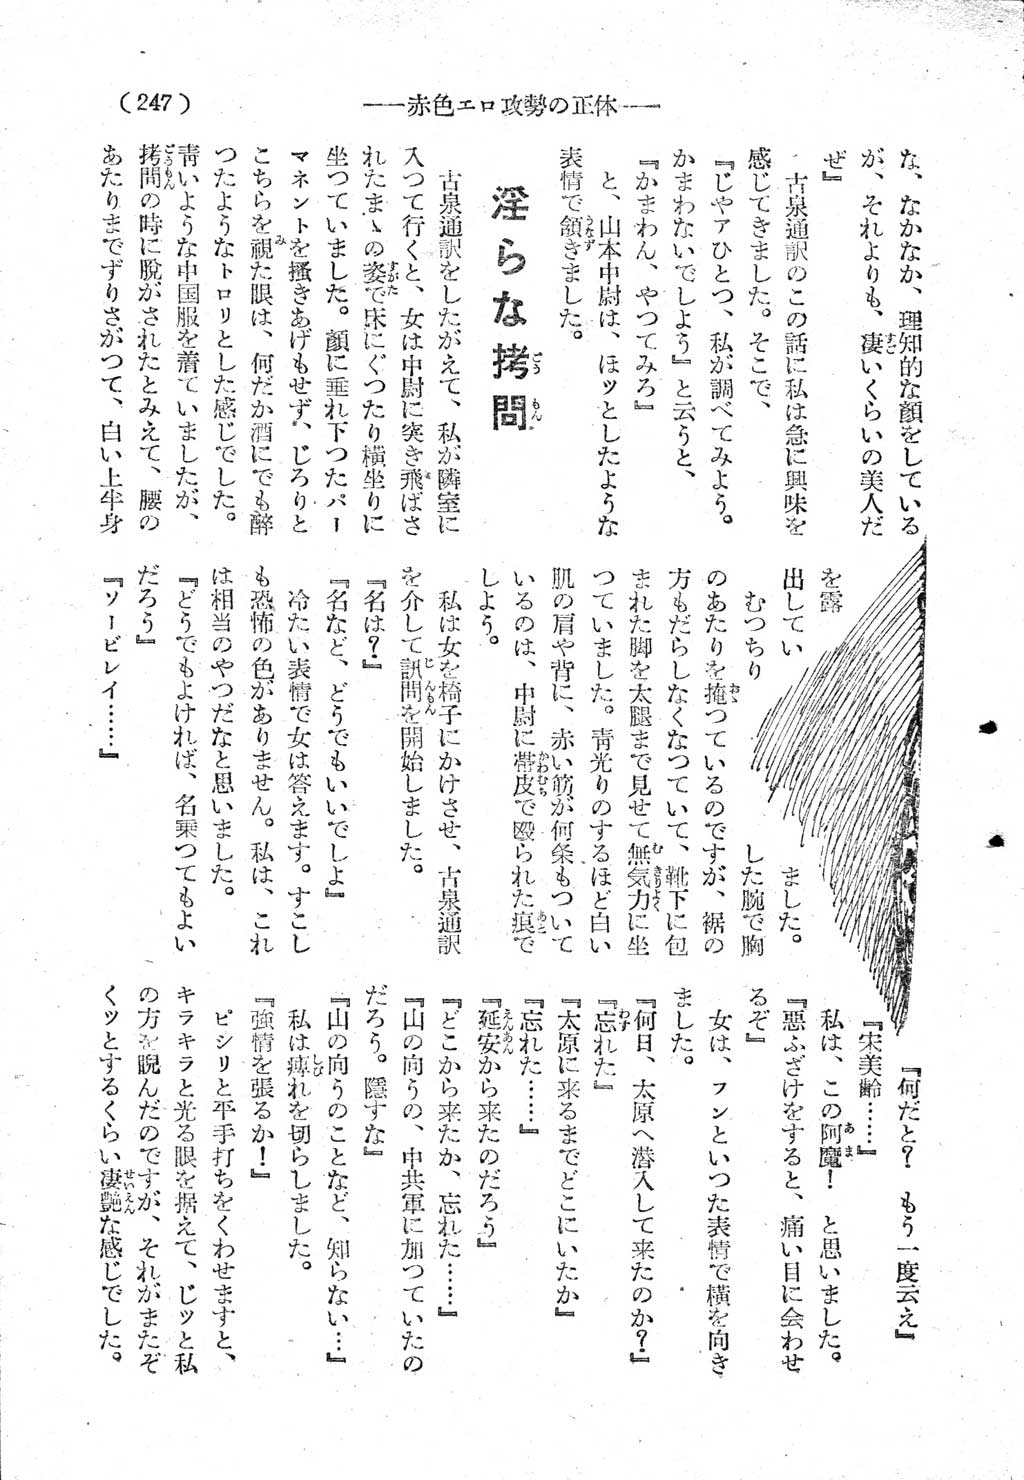 (247)
――赤色エロ攻勢の正体――
な、なかなか、理知的な顔をしている
が、それよりも、凄いくらいの美人だ
ぜ』
古泉通訳のこの話に私は急に興味を
感じてきました。そこで、
『じやアひとつ、私が調べてみよう。
かまわないでしよう』と云うと、
『かまわん、やつてみろ』
と、山本中尉は、ほッとしたような
表情で頷きました。
淫らな拷問
古泉通訳をしたがえて、私が隣室に
入つて行くと、女は中尉に突き飛ばさ
れたまゝの姿で床にぐつたり横坐りに
坐つていました。顔に垂れ下つたパー
マネントを掻きあげもせず、じろりと
こちらを視た眼は、何だか酒にでも醉
つたようなトロリとした感じでした。
靑いような中国服を着ていましたが、
拷問の時に脱がされたとみえて、腰の
あたりまでずりさがつて、白い上半身
を露
出してい
ました。
むつちり
した腕で胸
のあたりを掩つているのですが、裾の
方もだらしなくなつていて、靴下に包
まれた脚を太腿まで見せて無気力に坐
つていました。青光りのするほど白い
肌の肩や背に、赤い筋が何条もついて
いるのは、中尉に帯皮で毆られた痕で
しよう。
私は女を椅子にかけさせ、古泉通訳
を介して訊問を開始しました。
『名は？』
『名など、どうでもいいでしよ』
冷たい表情で女は答えます。すこし
も恐怖の色がありません。私は、これ
は相当のやつだなと思いました。
『どうでもよければ、名乗つてもよい
だろう』
『ソービレイ……』
『何だと？　もう一度云え』
『宋美齢……』
私は、この阿魔！　と思いました。
『悪ふざけをすると、痛い目に会わせ
るぞ』
女は、フンといつた表情で横を向き
ました。
『何日、太原へ潜入して来たのか？』
『忘れた』
『太原に来るまでどこにいたか』
『忘れた……』
『延安から来たのだろう』
『どこから来たか、忘れた……』
『山の向うの、中共軍に加つていたの
だろう。隠すな』
『山の向うのことなど、知らない…』
私は痺れを切らしました。
『強情を張るか！』
ピシリと平手打ちをくわせますと、
キラキラと光る眼を据えて、じッと私
の方を睨んだのですが、それがまたぞ
くッとするくらい凄艶な感じでした。